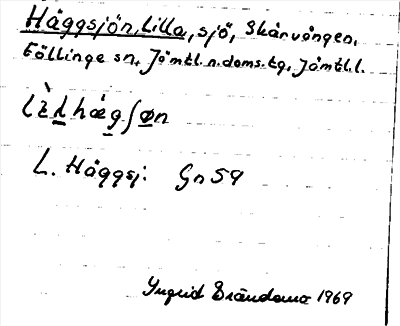 Häggsjön, Lilla, sjö, Skärvången,
Föllinge sn, Jämtl. n. doms. tg, Jämtl. l.
L. Häggsj: Gn 59
Ingrid Brändama 1969